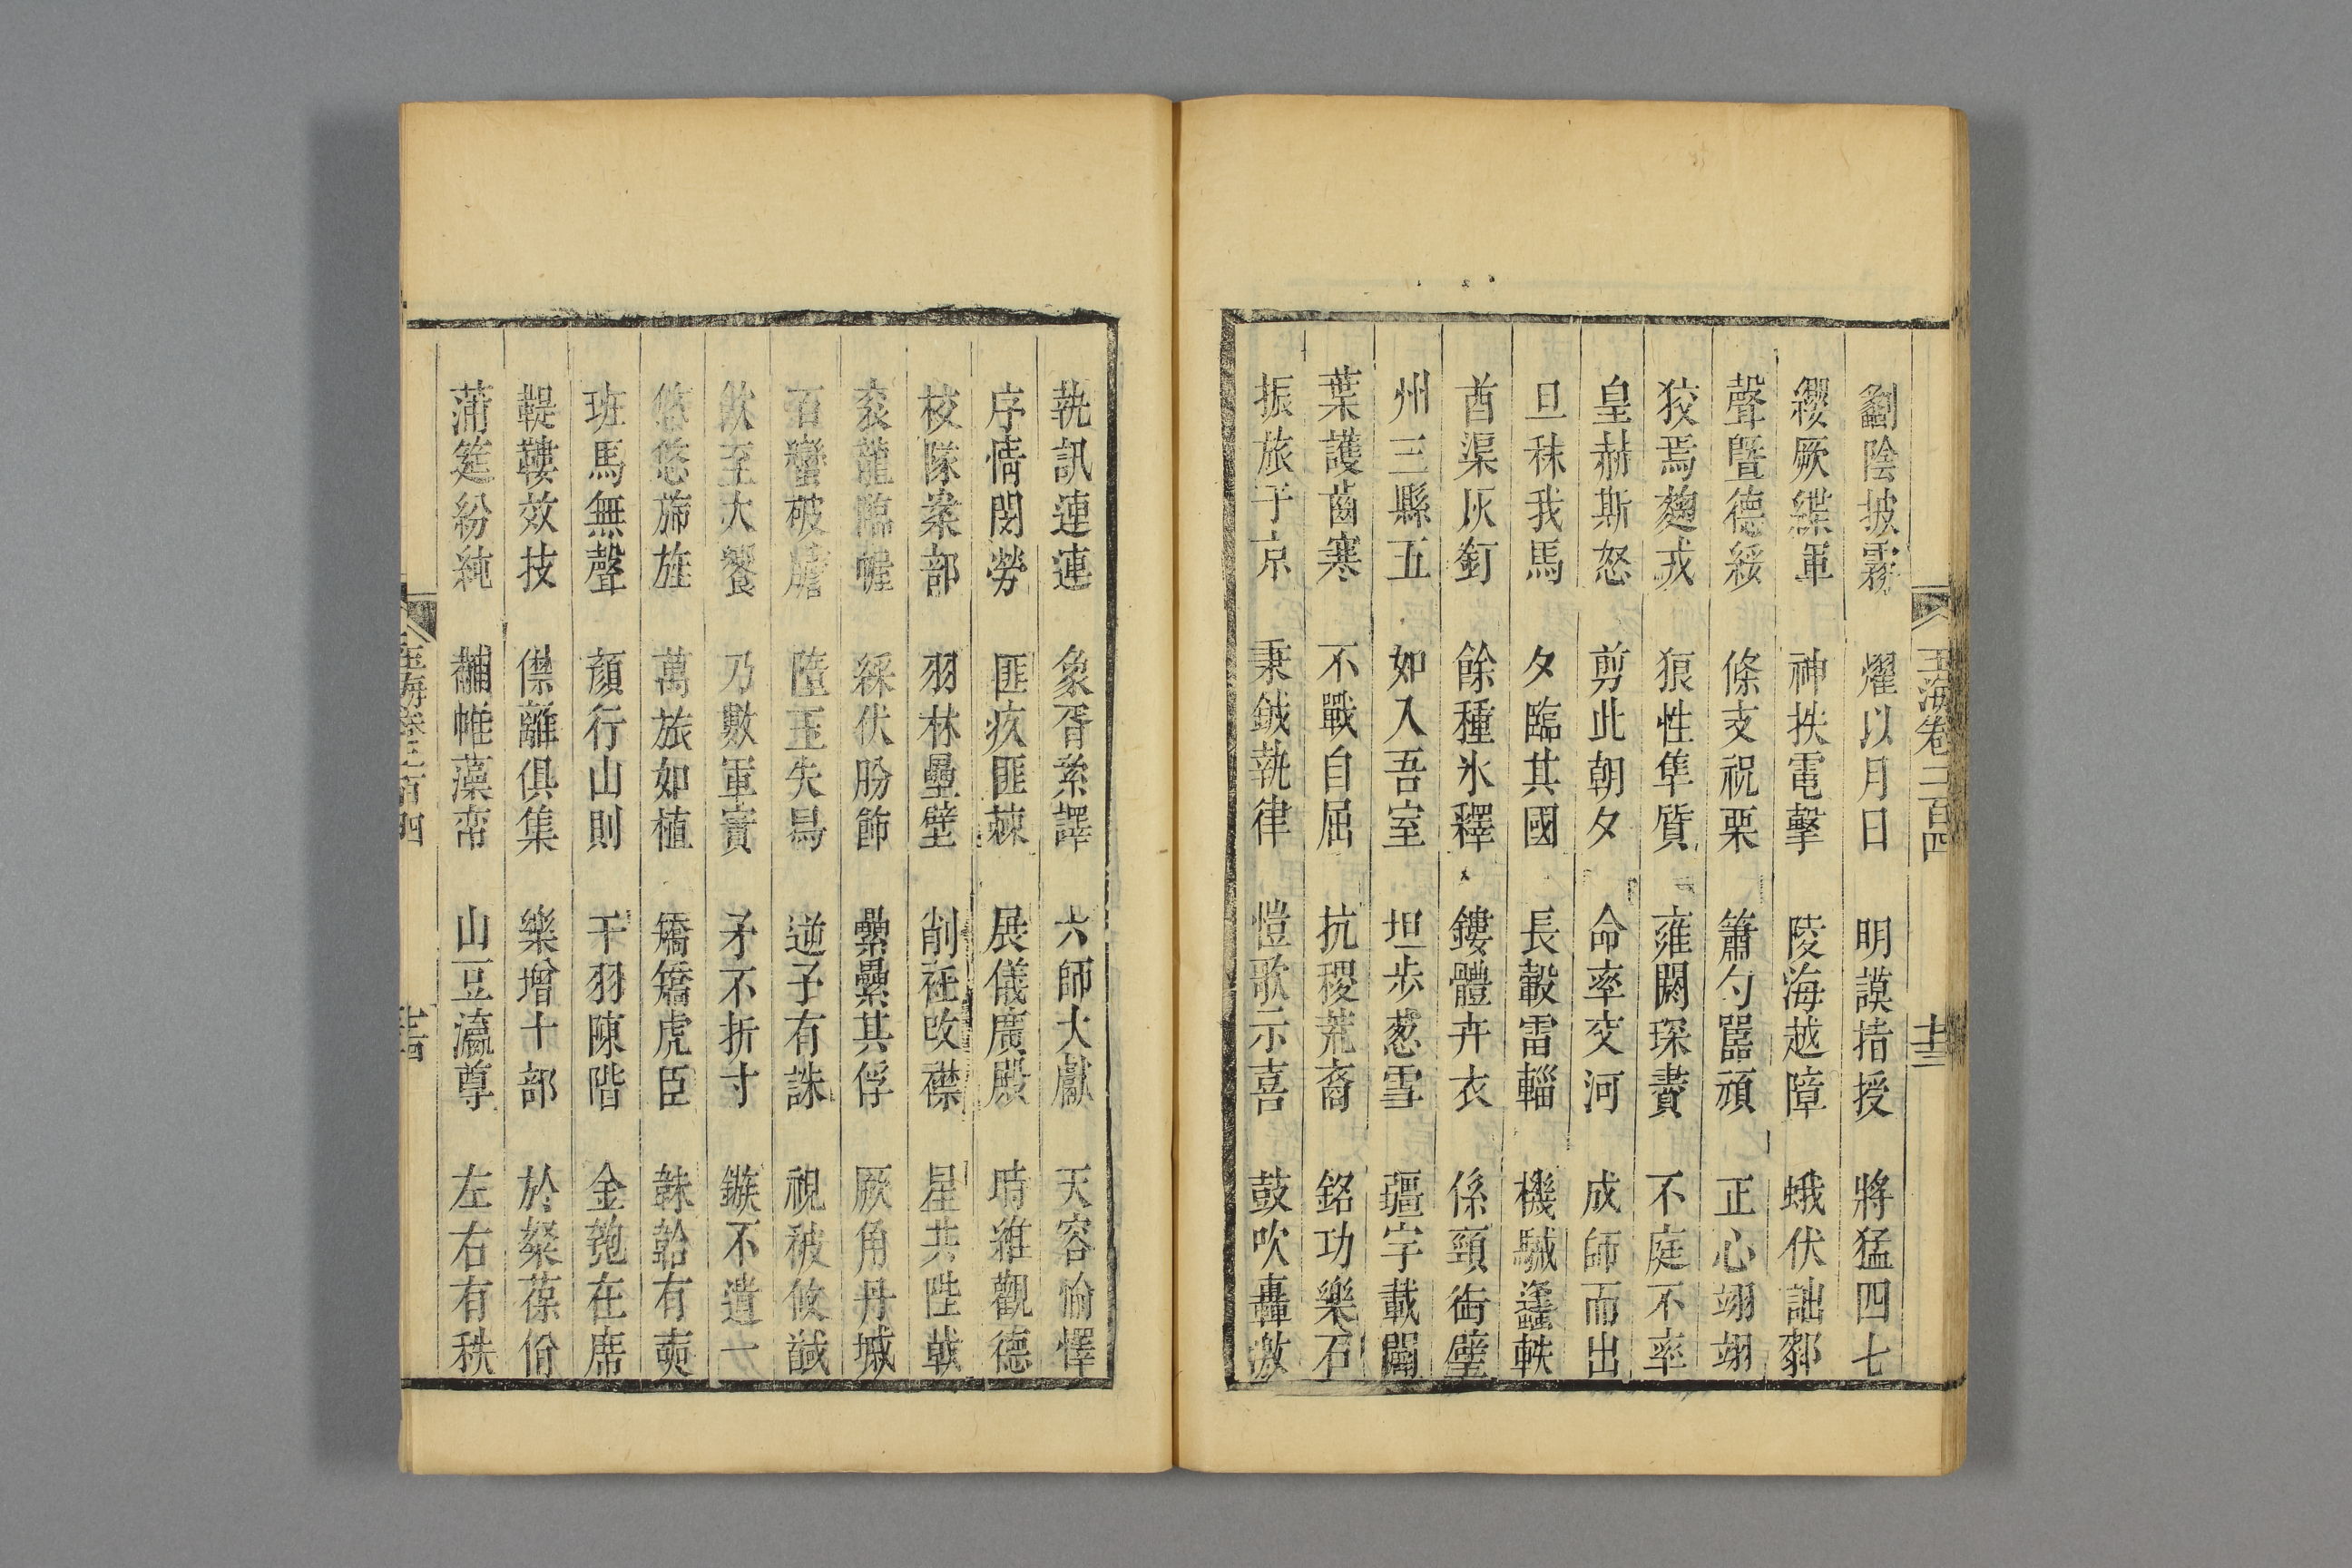 玉海卷二百四 十三
劙陰披霧 燿以月日 明謨指授 將猛四七
纓厥緤軍 神抶電擊 陵海越障 蛾伏詘鄴
聲曁德綏 條支祝栗 簫勺嚚頑 正心翊翊
狡焉麴戎 狼性隼質 雍闕琛賮 不庭不率
皇赫斯怒 剪此朝夕 命率交河 成師而出
旦秣我馬 夕臨其國 長轂雷輜 機駴蠭軼
酋渠灰釘 餘種氷釋 鏤體卉衣 係頸衘璧
州三縣五 如入吾室 坦步葱雪 疆宇載闢
葉護齒寒 不戰自屈 抗稷荒裔 銘功樂石
振旅于京 秉鉞執律 愷歌示喜 鼓吹轟激
執訊連連 象胥紊譯 六師大獻 天容愉懌
序情閔勞 匪疚匪棘 展儀廣殿 時維觀德
校隊案部 羽林壘壁 削衽改襟 星共陛戟
衮龍臨幄 綵伏肦飾 纍纍其俘 厥角丹墄
百蠻破膽 隆玉失舄 逆子有誅 視彼攸馘
飲至大饗 乃數軍實 矛不折寸 鏃不遺一
悠悠旆旌 萬旅如植 矯矯虎臣 韎韐有奭
班馬無聲 顏行山則 干羽陳階 金匏在席
鞮鞻效技 僸離俱集 樂增十部 於粲葆佾
蒲筵紛純 黼帷藻帟 山豆瀛尊 左右有秩
玉海卷二百四 十四